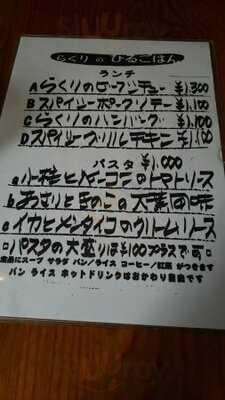 らくりのひるごはん
ランチ
Aらくりのビーフシチュー ¥1,300
Bスパイシーポークソテー ¥1,100
Cらくりのハンバーグ ¥1,100
Dスパイシーグリルチキン ¥1,100
パスタ ¥1,000
a小柱とベーコンのトマトソース
bあさりときのこの大葉風味
cイカとメンタイコのクリームソース
□パスタの大盛りは¥100プラスです□
全品にスープ サラダ パン/ライス コーヒー/紅茶 がつきます
パン ライス ホットドリンクはおかわり自由です